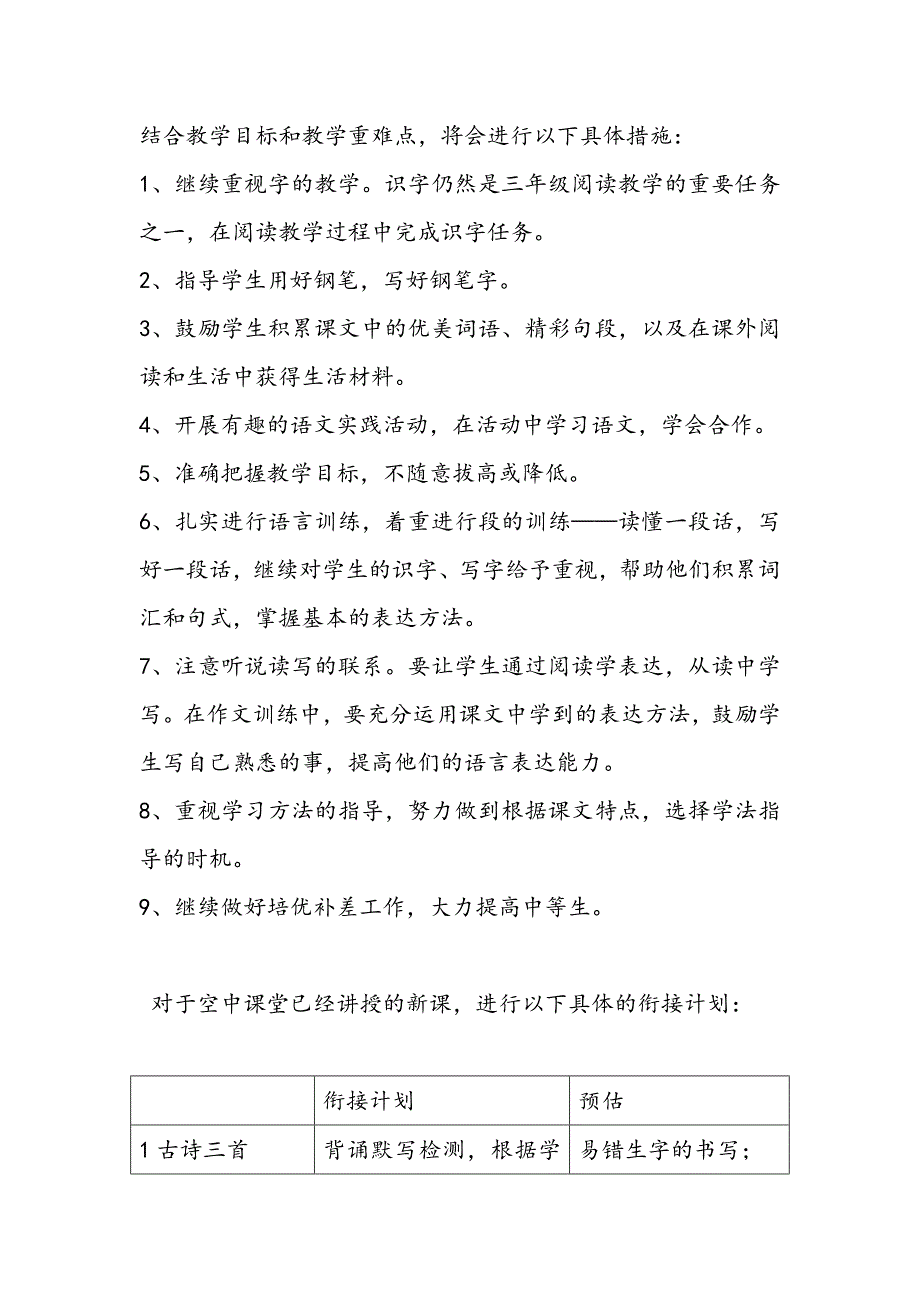 结合教学目标和教学重难点，将会进行以下具体措施：
1、继续重视字的教学。识字仍然是三年级阅读教学的重要任务
之一，在阅读教学过程中完成识字任务。
2、指导学生用好钢笔，写好钢笔字。
3、鼓励学生积累课文中的优美词语、精彩句段，以及在课外阅
读和生活中获得生活材料。
4、开展有趣的语文实践活动，在活动中学习语文，学会合作。
5、准确把握教学目标，不随意拔高或降低。
6、扎实进行语言训练，着重进行段的训练——读懂一段话，写
好一段话，继续对学生的识字、写字给予重视，帮助他们积累词
汇和句式，掌握基本的表达方法。
7、注意听说读写的联系。要让学生通过阅读学表达，从读中学
写。在作文训练中，要充分运用课文中学到的表达方法，鼓励学
生写自己熟悉的事，提高他们的语言表达能力。
8、重视学习方法的指导，努力做到根据课文特点，选择学法指
导的时机。
9、继续做好培优补差工作，大力提高中等生。
对于空中课堂已经讲授的新课，进行以下具体的衔接计划：
衔接计划 预估
1 古诗三首 背诵默写检测，根据学 易错生字的书写；